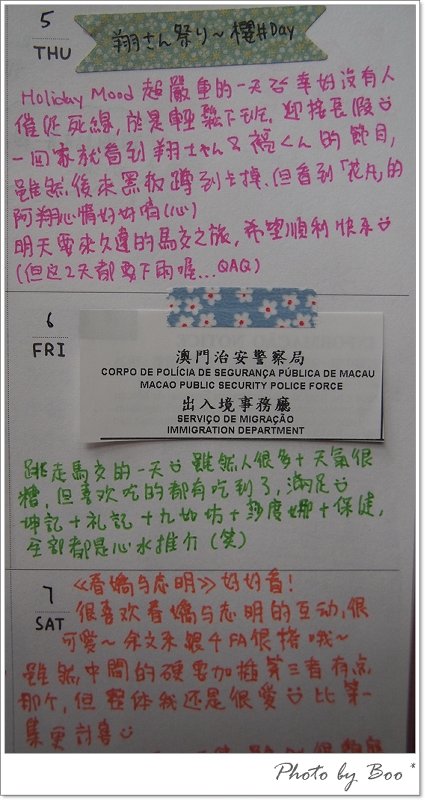 5
THU
翔さん祭り~櫻井Day
Holiday Mood 超嚴重的一天 幸好沒有人
催促死線,於是輕鬆下班,迎接長假
一回家就看到翔ちゃん&
的節目,
雖然後來黑板蹲到卡掉,但看到「花丸」的
阿翔心情好好(心)
明天要來久違的馬交之旅,希望順利快樂
(但這2天都要下雨喔...QAQ)
6
FRI
澳門治安警察局
CORPO DE POLÍCIA DE SEGURANÇA PÚBLICA DE MACAU
MACAO PUBLIC SECURITY POLICE FORCE
出入境事務廳
SERVIÇO DE MIGRAÇÃO
IMMIGRATION DEPARTMENT
跳走馬交的一天 雖然人很多+天氣很
糟,但喜欢吃的都有吃到了,滿足
坤記+礼記+九如坊+莎度娜+保健,
全部都是心水推介(笑)
7
SAT
《春嬌与志明》好好看!
很喜欢春嬌与志明的互动,很
可愛~余文乐跟千FA很搭哦~
雖然中間的硬要加插第三者有点
那个,但整体我还是很愛 比第一
集更討喜
Photo by Boo*